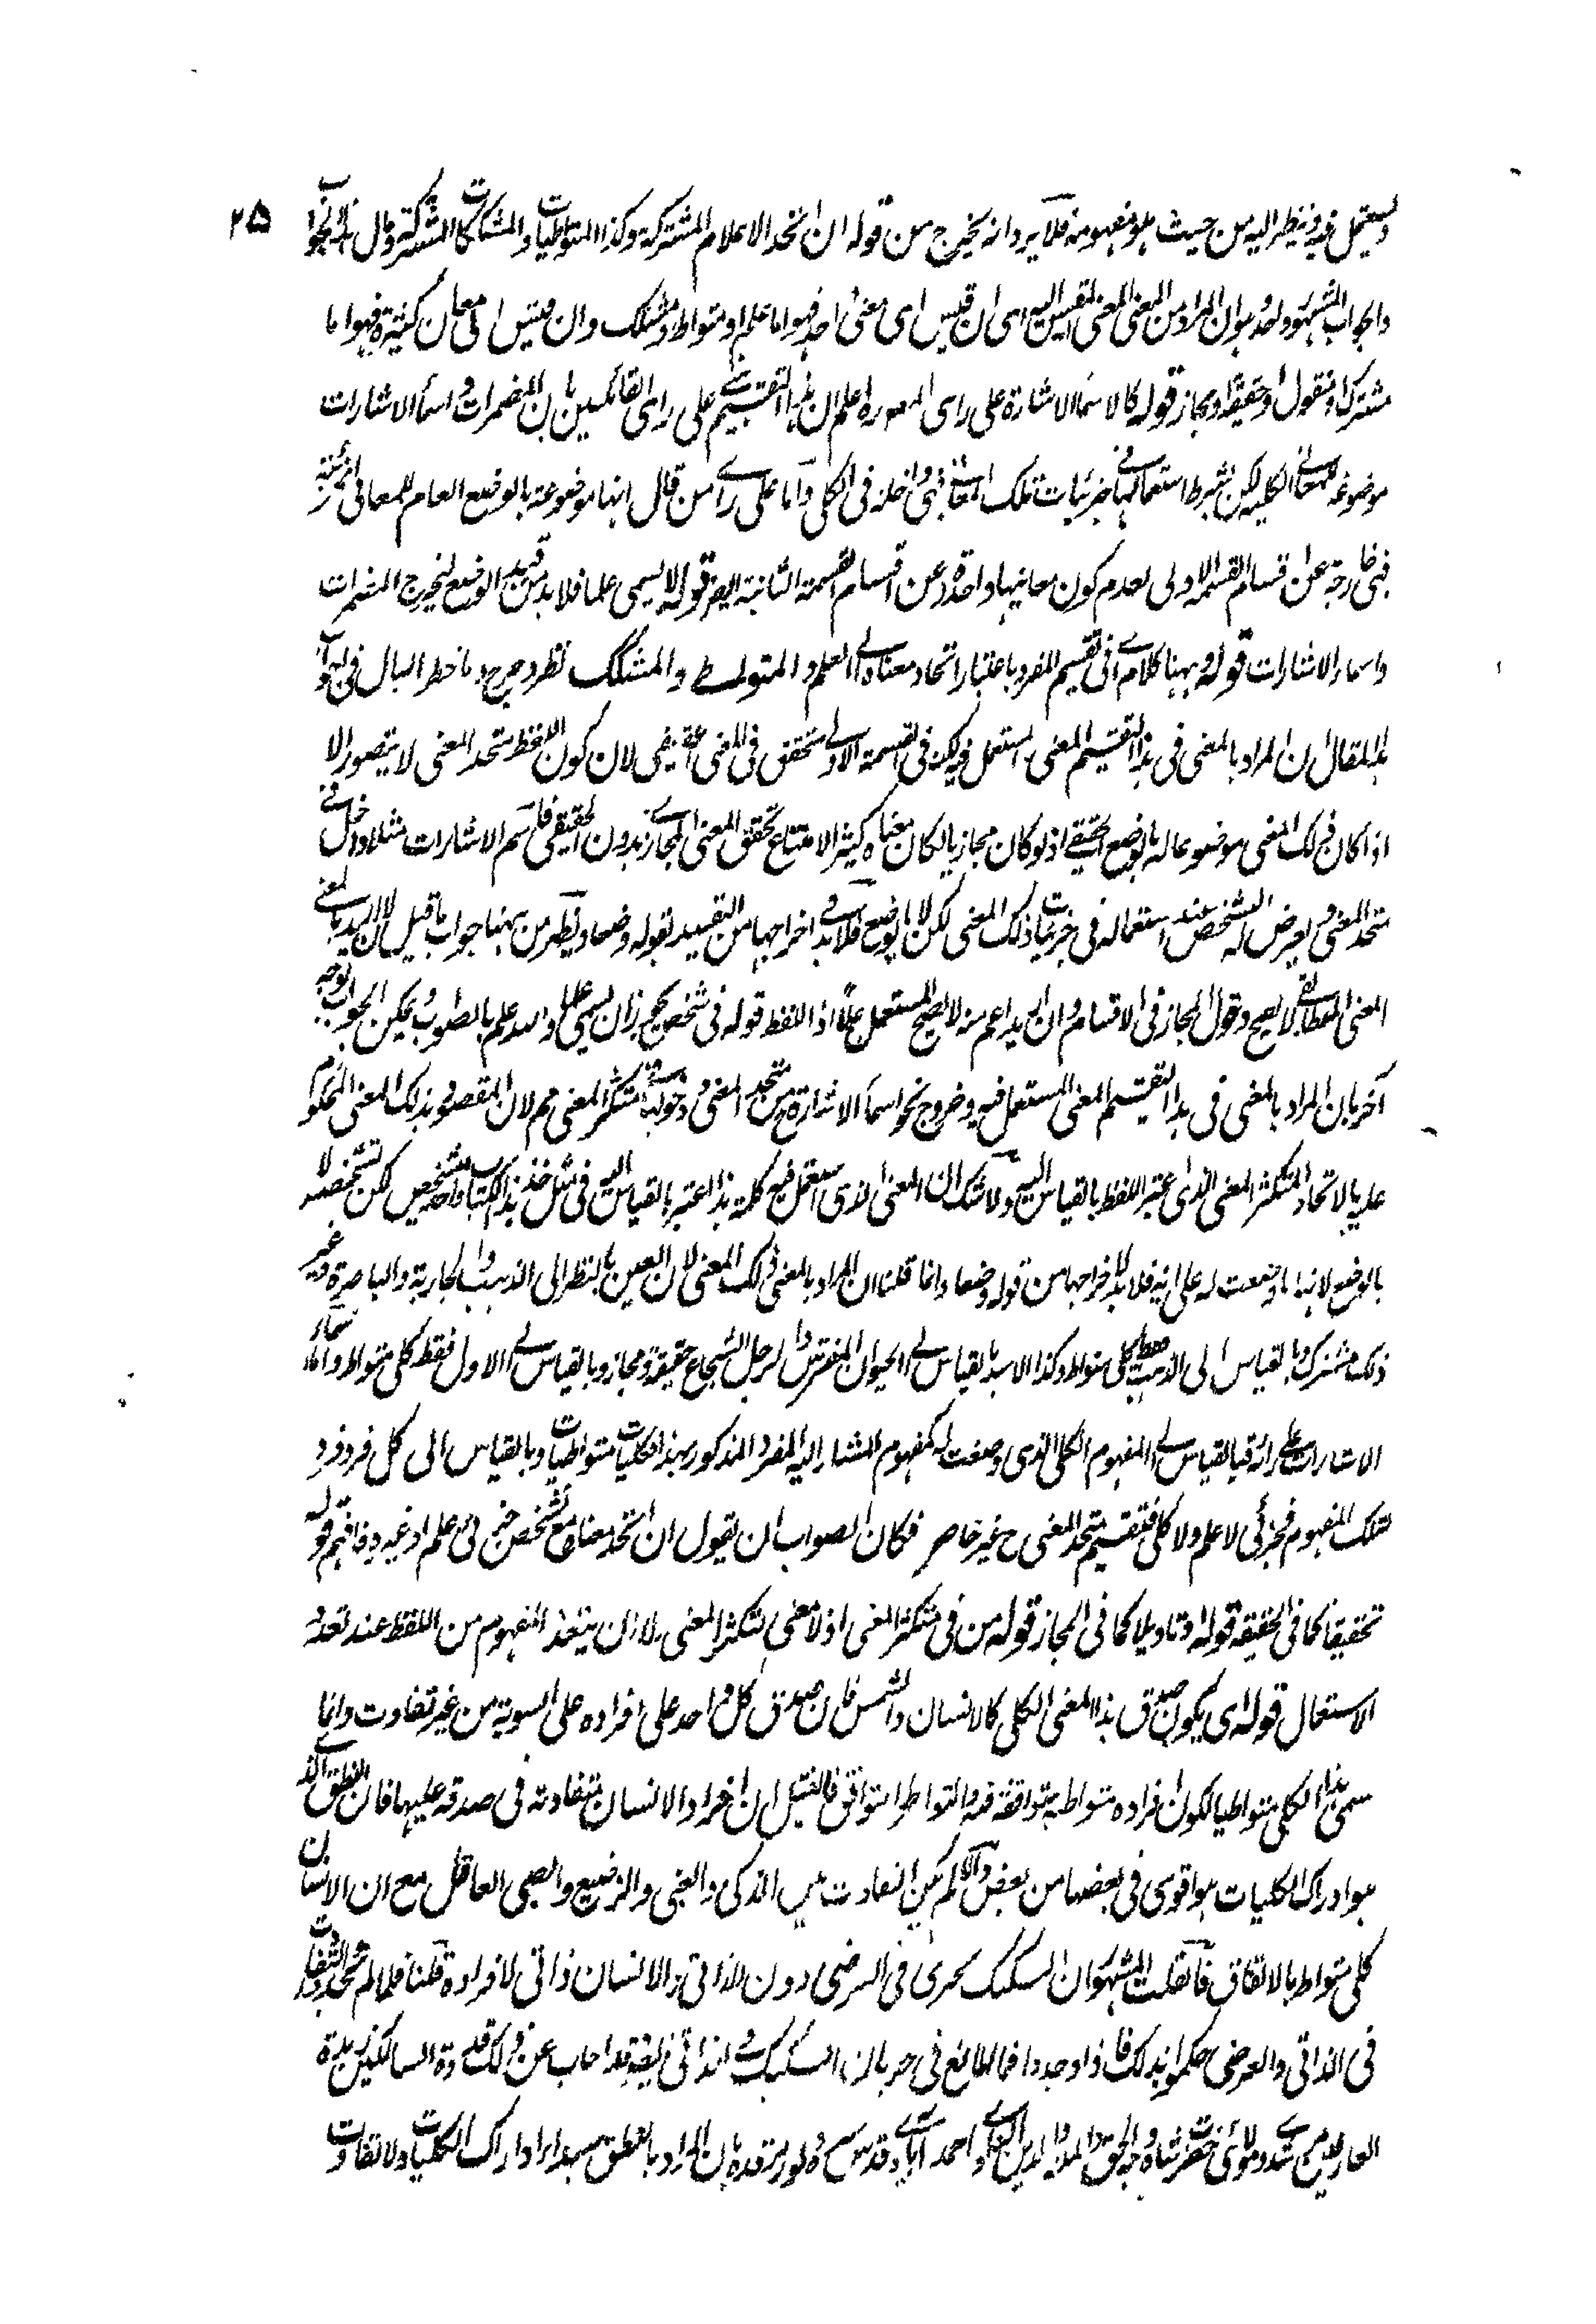 ٢٥
ويستعمل فيه وينظر اليه من حيث هو مفهومه فلا يرد انه يخرج من قوله ان اتحد الاعلام المشتركة وكذا المتواطيات والمشككات المشتركة وقال
والجواب المشهور وهو ان المراد من المعنى المعنى المقيس اليه اى ان قيس اى معنى واحد فهو اما علم او متواط او مشكك وان قيس الى معان كثيرة فهو اما
مشترك او منقول او حقيقة او مجاز قوله كالاسماء الاشارة على راى المصـ وره اعلم ان هذا التقسيم على راى القائلين بان المضمرات واسماء الاشارات
موضوعة للمعانى الكلية لكن بشرط استعمالها فى جزئيات تلك المعانى فهى داخلة فى الكلى واما على راى من قال انها موضوعة بالوضع العام للمعانى الجزئية
فهى خارجة عن اقسام القسمة الاولى لعدم كون معانيها واحدة وعن اقسام القسمة الثانية ايضا قوله لا يسمى علما فلا بد من قيد الوضع ليخرج المضمرات
واسماء الاشارات قوله وههنا كلام اى فى تقسيم المفرد باعتبار اتحاد معناه الى العلم والمتواطى والمشكك نظر وجرح وما خطر البال فى الجواب
هذا المقال ان المراد بالمعنى فى هذا التقسيم المعنى المستعمل فيه لكن فى القسمة الاولى متحقق فى المعنى الحقيقى لان كون اللفظ متحد المعنى لا يتصور الا
اذا كان ذلك المعنى موضوعا له بالوضع الحقيقى اذ لو كان مجازيا لكان معناه كثيرا لامتناع تحقق المعنى المجازى بدون الحقيقى فاسم الاشارات مثلا داخل فى
متحد المعنى ويعرض له التشخص عند استعماله فى جزئيات ذلك المعنى لكن لا بالوضع فلا بد فى اخراجها من التقييد بقوله وضعا ويظهر من ههنا جواب ما قيل ان اريد بالمعنى
المعنى المطابقى لا يصح دخول المجاز فى الاقسام وان اريد اعم منه لا يصح المستعمل علما اذ اللفظ قوله فى شخص يجوز ان يسمى علما والله اعلم بالصواب ويمكن الجواب بوجه
آخر بان المراد بالمعنى فى هذا التقسيم المعنى المستعمل فيه وخروج نحو اسماء الاشارة من متحد المعنى ودخولها فى متكثر المعنى مم لان المقصود بذلك المعنى المحكوم
عليه بالاتحاد والتكثر المعنى الذى اعتبر اللفظ بالقياس اليه ولا شك ان المعنى الذى استعمل فيه كلمة هذا المعتبر بالقياس اليه فى مثل خذ هذا الكتاب واحد مشخص لكن تشخصه لا
بالوضع لانها ما وضعت له على رايه فلا بد لاخراجها من قوله وضعا وانما قلنا ان المراد بالمعنى ذلك المعنى لان العين بالنظر الى الذهب والجارية والباصرة وغير
ذلك مشترك وبالقياس الى الذهب فقط كلى متواط وكذا الاسد بالقياس الى الحيوان المفترس والرجل الشجاع حقيقة ومجاز وبالقياس الى الاول فقط كلى متواط واما اسماء
الاشارات على رائه فبالقياس الى المفهوم الكلى الذى وضعت له كمفهوم المشار اليه المفرد المذكور بهذا كليات متواطيات وبالقياس الى كل فرد فرد
لتلك المفهوم فجزئى لا علم ولا كلى فتقسيم متحد المعنى ح غير حاصر فكان الصواب ان يقول ان اتحد معناه فمع تشخص جزئى علم او غيره فافهم قوله
تحقيقا كما فى الحقيقة قوله او تاويلا كما فى المجاز قوله من فى متكثر المعنى اذ لا معنى لتكثر المعنى الا ان يتعدد المفهوم من اللفظ عند تعدد
الاستعمال قوله اى يكون صدق هذا المعنى الكلى كالانسان والشمس فان صدق كل واحد على افراده على السوية من غير تفاوت وانما
سمى هذا الكلى متواطيا لكون افراده متواطية متوافقة فيه والتواطؤ التوافق فان قيل ان افراد الانسان متفاوتة فى صدقه عليها فان النطق الذى
هو ادراك الكليات هو اقوى فى بعضها من بعض والا لم يكن التفاوت بين الذكى والغبى والرضيع والصبى العاقل مع ان الانسان
كلى متواط بالاتفاق فان قلت المشهور ان التشكيك يجرى فى العرضى دون الذاتى والانسان ذاتى لافراده قلنا فلما لم تتحد التفاوت
فى الذاتى والعرضى حكموا بذلك فاذا وجد وا فما المانع فى جريان التشكيك فى الذاتى ايضا قد اجاب عن ذلك قدوة السالكين زبدة
العارفين مرشدى ومولائى حضرت شاه وجيه الحق والملة والدين العلوى احمد آبادى قدس سره ونور مرقده بان المراد بالنطق مبدا ادراك الكليات ولا تفاوت